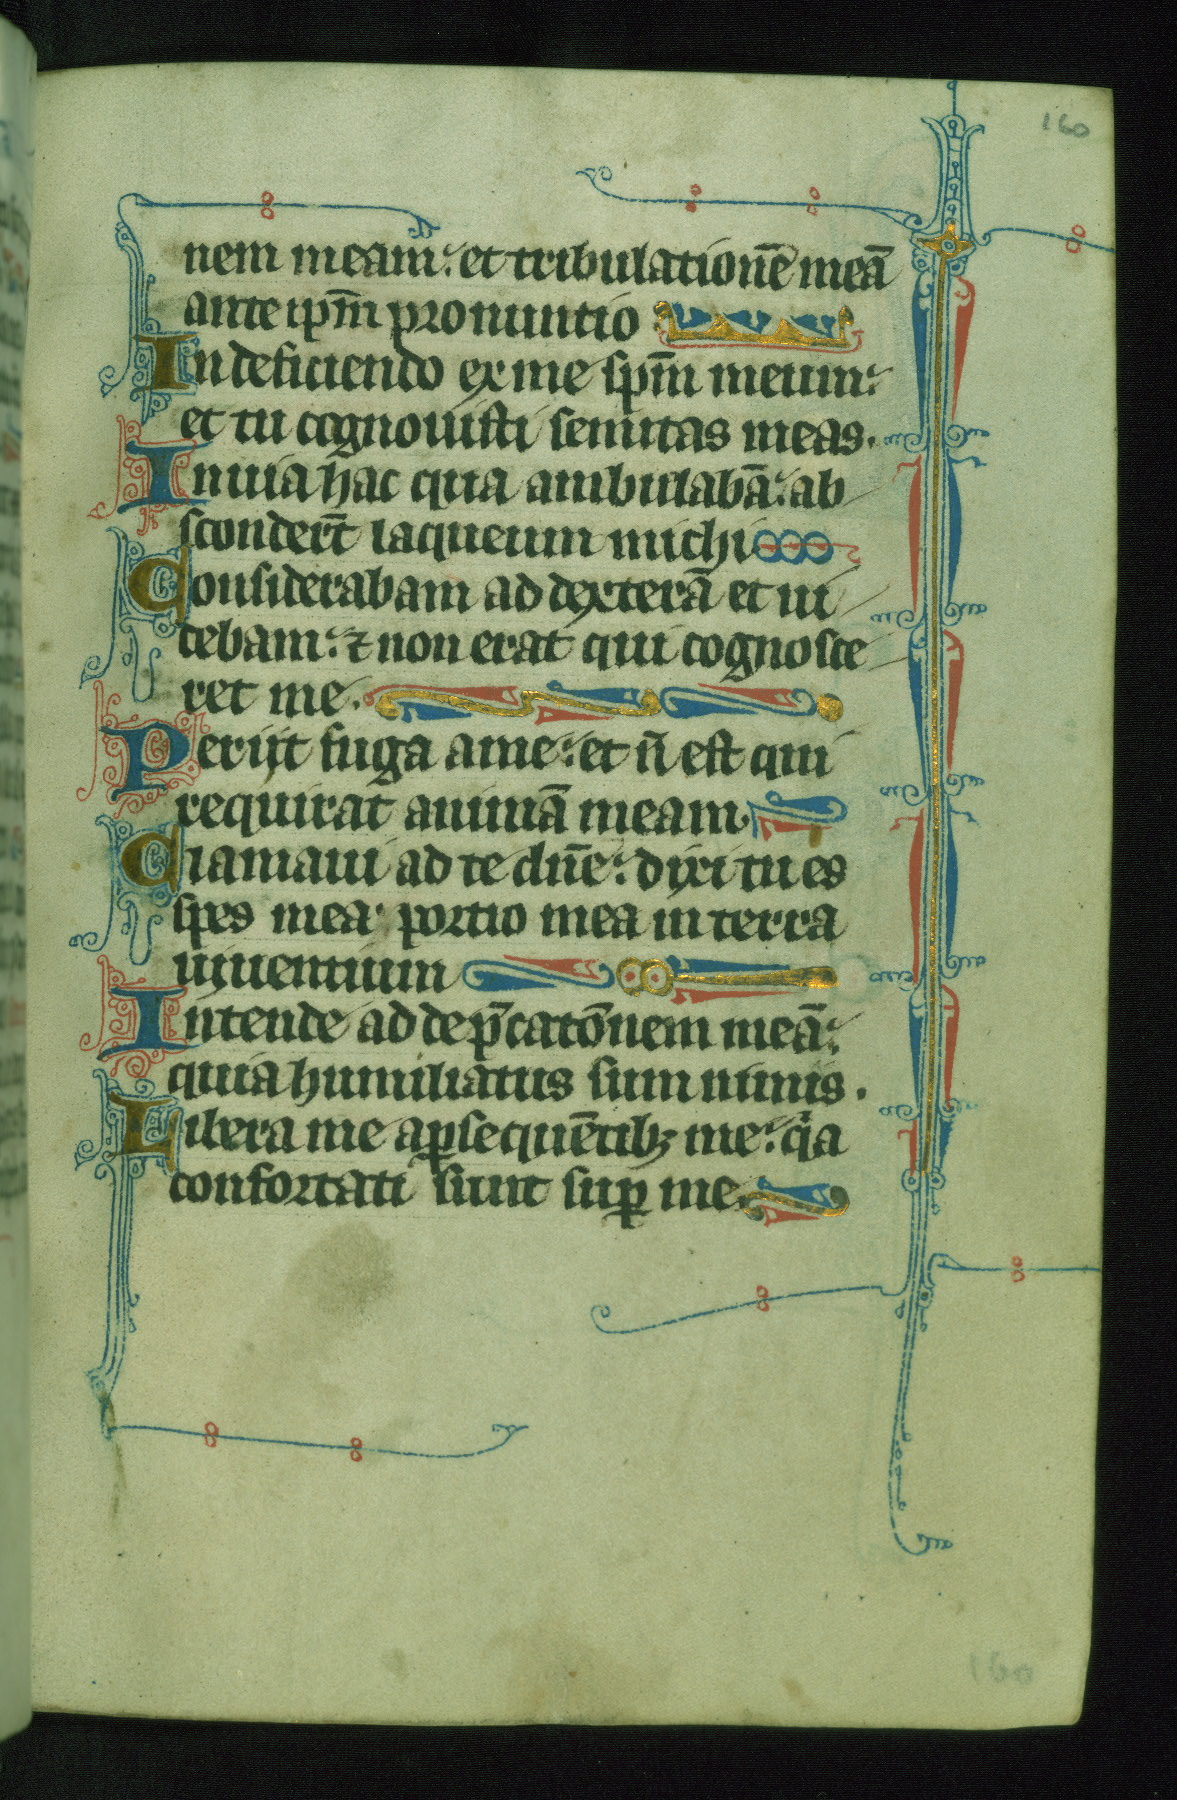 160
nem meam: et tribulationē meā
ante ip̄m pronuntio
In deficiendo ex me sp̄m meum:
et tu cognouisti semitas meas.
In uia hac qua ambulabā: ab
scondert̄ laqueum michi
Considerabam ad dexterā et ui
debam: ⁊ non erat qui cognosce
ret me.
Perijt fuga a me: et ñ est qui
requirat animā meam
Clamaui ad te dn̄e: dixi tu es
spes mea portio mea in terra
uiuentium
Intende ad dep̄catōnem meā:
quia humiliatus sum nimis.
Libera me a ꝑsequētibꝫ me: qͥa
confortati sunt suꝑ me.
160